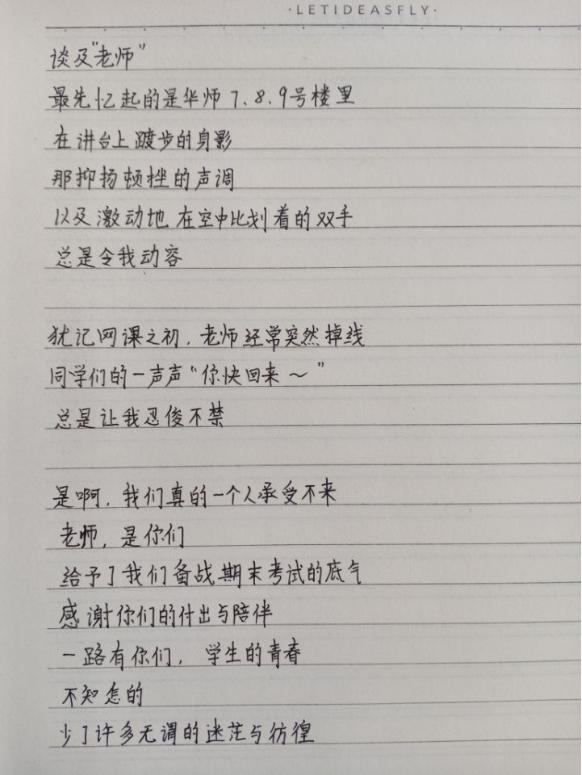 ·LETIDEASFLY·
谈及"老师"
最先忆起的是华师7.8.9号楼里
在讲台上踱步的身影
那抑扬顿挫的声调
以及激动地在空中比划着的双手
总是令我动容
犹记网课之初,老师经常突然掉线
同学们的一声声"你快回来~"
总是让我忍俊不禁
是啊,我们真的一个人承受不来
老师,是你们
给予了我们备战期末考试的底气
感谢你们的付出与陪伴
一路有你们,学生的青春
不知怎的
少了许多无谓的迷茫与彷徨